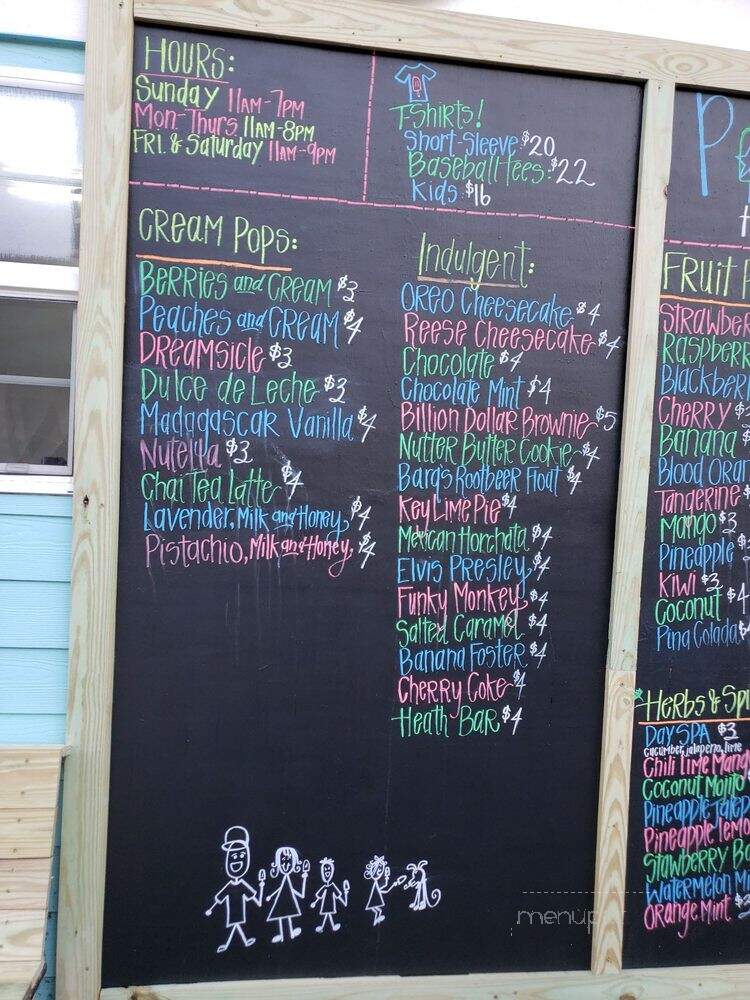 HOURS:
Sunday 11AM-7PM
Mon-Thurs. 11AM-8PM
FRI. & Saturday 11AM-9PM
T-Shirts!
Short-Sleeve $20
Baseball tees: $22
Kids $16
CREAM POPS:
BERRIES and CREAM $3
PEACHES and CREAM $4
DREAMSICLE $3
Dulce de Leche $3
Madagascar Vanilla $4
Nutella $3
Chai Tea Latte $4
Lavender, Milk and Honey $4
Pistachio, Milk and Honey, $4
Indulgent:
OREO Cheesecake $4
Reese Cheesecake $4
Chocolate $4
Chocolate Mint $4
Billion Dollar Brownie $5
Nutter Butter Cookie $4
Barq's Rootbeer Float $4
Key Lime Pie $4
Mexican Horchata $4
Elvis Presley $4
Funky Monkey $4
Salted Caramel $4
Banana Foster $4
Cherry Coke $4
Heath Bar $4
Fruit
Cherry
Banana
Blood
Tangerine
Mango $3
Pineapple
Kiwi $3
Coconut $4
Pina Colada
Herbs &
DAY SPA $3
cucumber, jalapeno, lime
Chili Lime
Coconut Mojito
Pineapple
Pineapple
Watermelon
Orange Mint
menupix